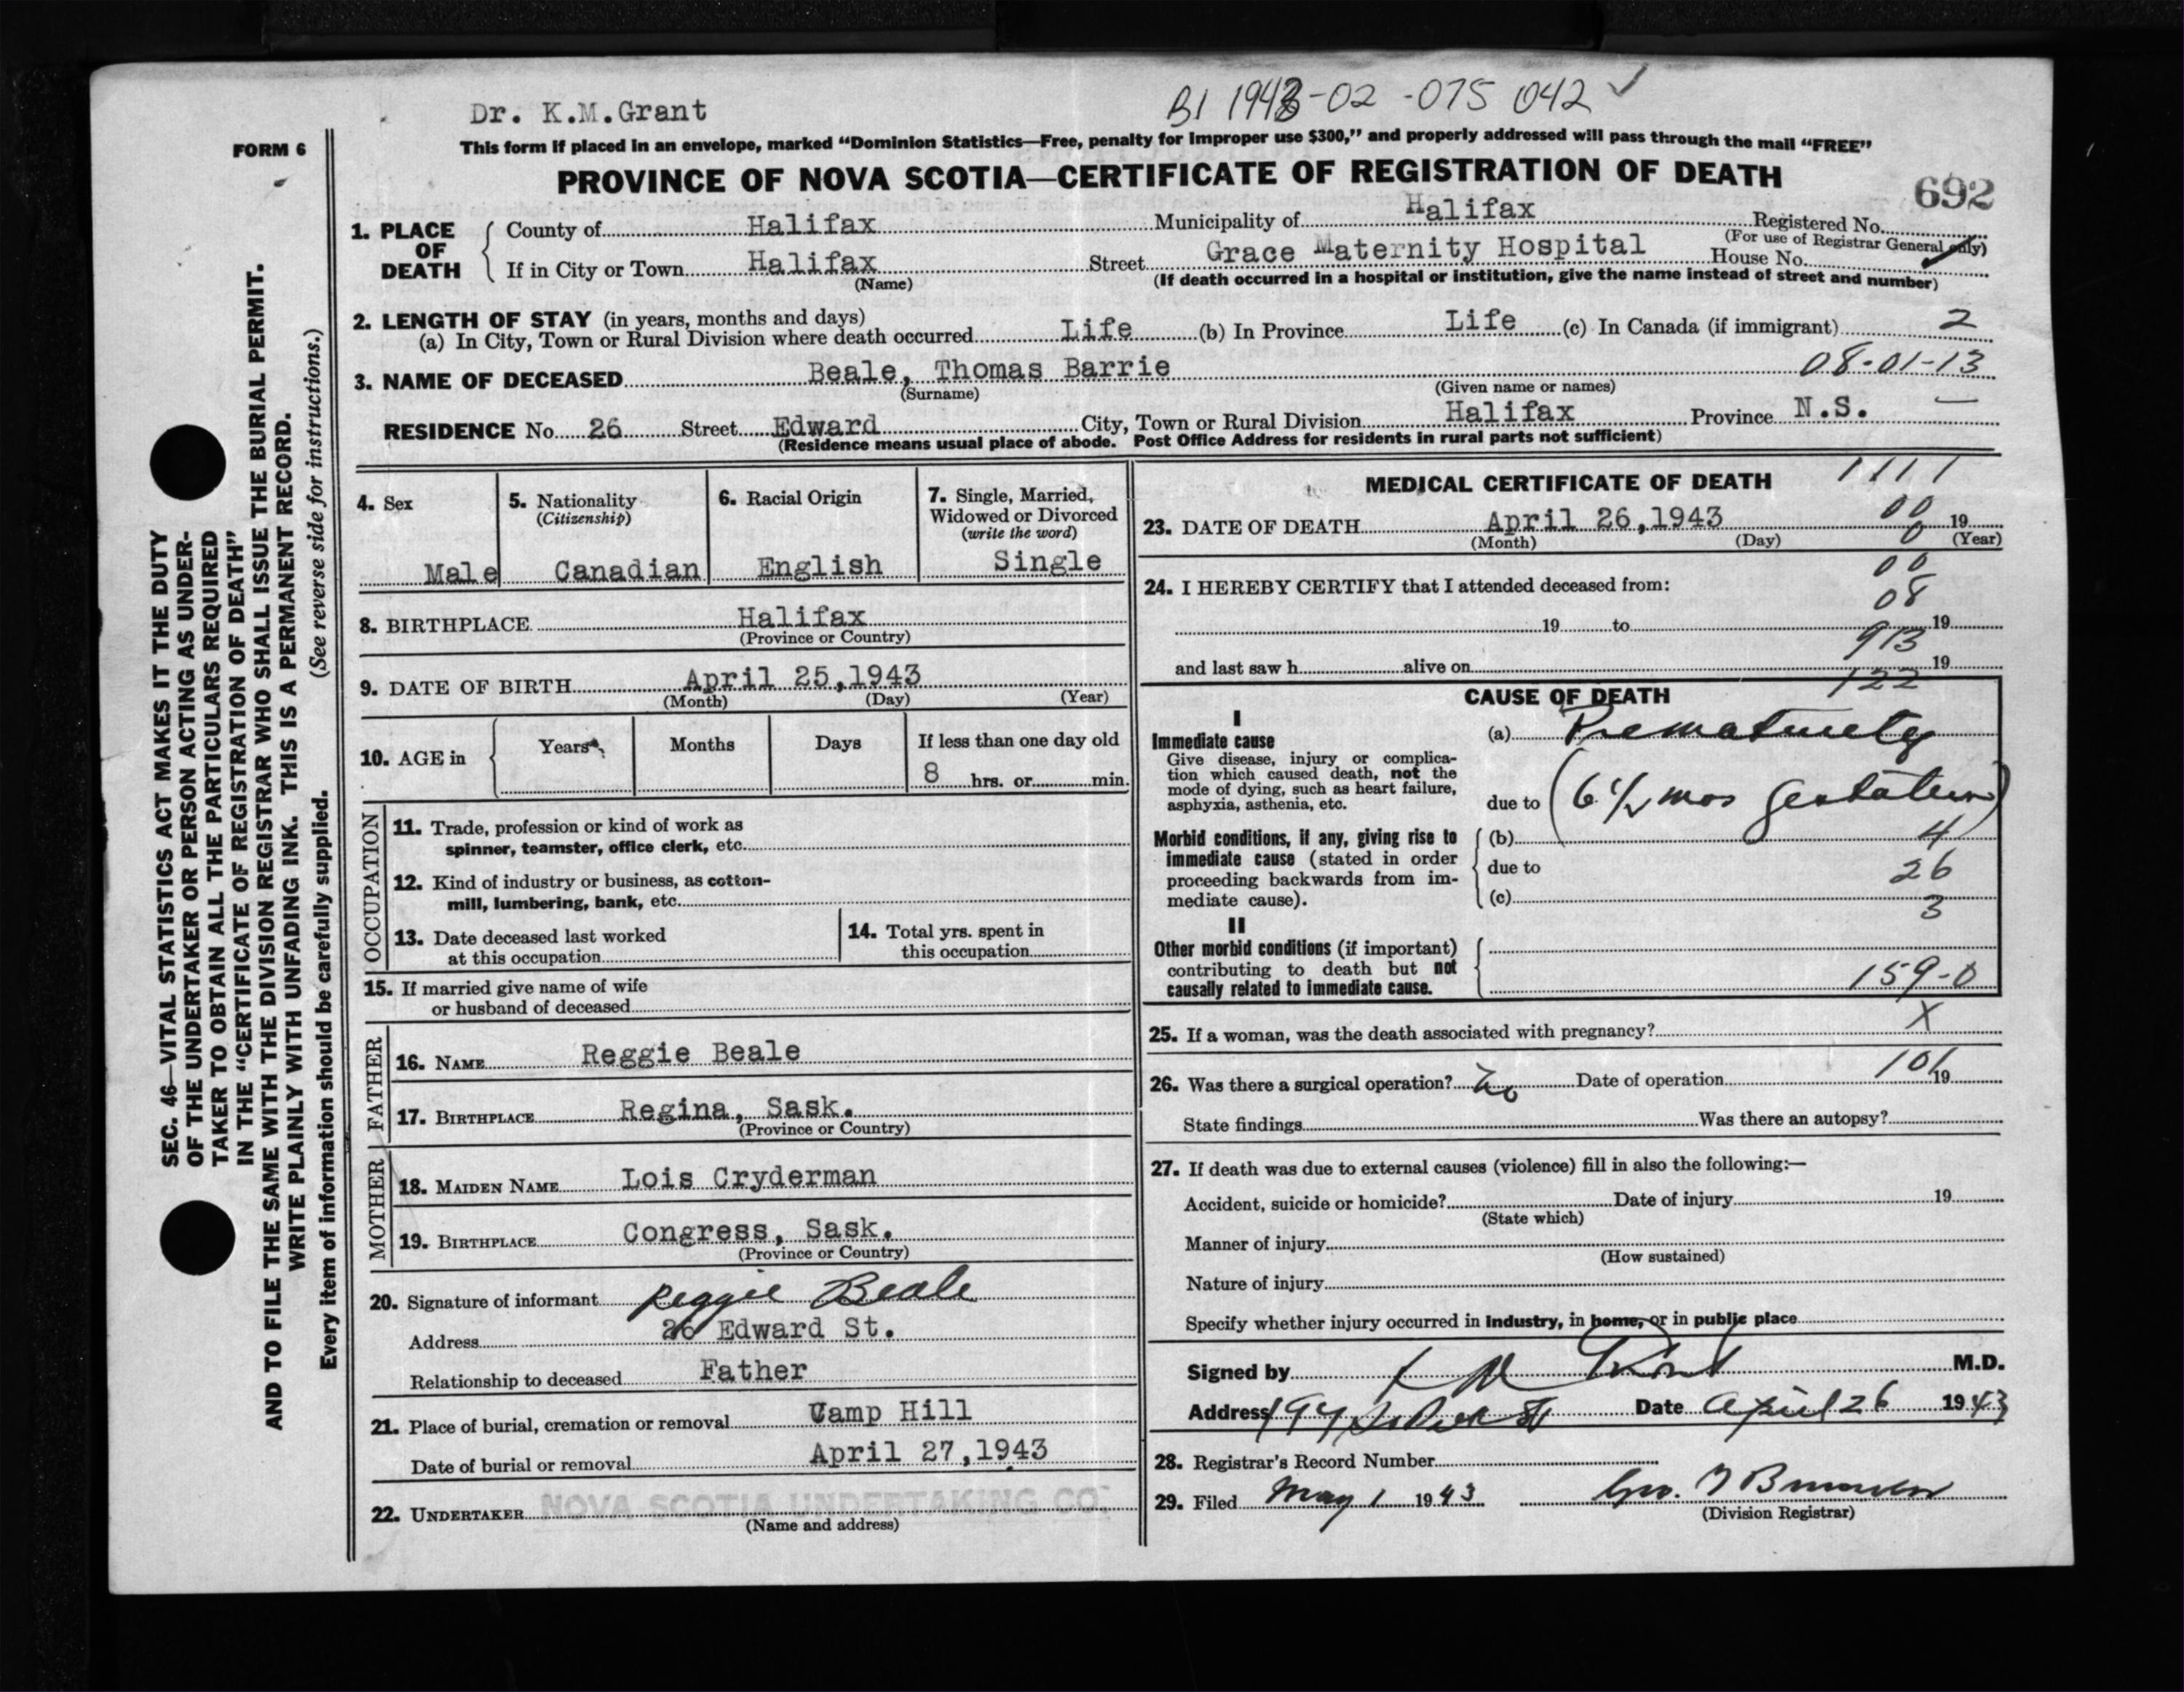 Dr. K.M.Grant
B1 1943-02-075042 ✓
FORM 6
This form if placed in an envelope, marked “Dominion Statistics—Free, penalty for improper use $300,” and properly addressed will pass through the mail “FREE”
PROVINCE OF NOVA SCOTIA—CERTIFICATE OF REGISTRATION OF DEATH
692
1. PLACE OF DEATH
County of Halifax Municipality of Halifax Registered No.
(For use of Registrar General only)
If in City or Town Halifax Street Grace Maternity Hospital House No.
(Name) (If death occurred in a hospital or institution, give the name instead of street and number)
2. LENGTH OF STAY (in years, months and days)
(a) In City, Town or Rural Division where death occurred Life (b) In Province Life (c) In Canada (if immigrant) 2
3. NAME OF DECEASED Beale, Thomas Barrie 08-01-13
(Surname) (Given name or names)
RESIDENCE No. 26 Street Edward City, Town or Rural Division Halifax Province N.S.
(Residence means usual place of abode. Post Office Address for residents in rural parts not sufficient)
SEC. 46—VITAL STATISTICS ACT MAKES IT THE DUTY
OF THE UNDERTAKER OR PERSON ACTING AS UNDER-
TAKER TO OBTAIN ALL THE PARTICULARS REQUIRED
IN THE “CERTIFICATE OF REGISTRATION OF DEATH”
AND TO FILE THE SAME WITH THE DIVISION REGISTRAR WHO SHALL ISSUE THE BURIAL PERMIT.
WRITE PLAINLY WITH UNFADING INK. THIS IS A PERMANENT RECORD.
Every item of information should be carefully supplied. (See reverse side for instructions.)
4. Sex
Male
5. Nationality
(Citizenship)
Canadian
6. Racial Origin
English
7. Single, Married,
Widowed or Divorced
(write the word)
Single
8. BIRTHPLACE Halifax
(Province or Country)
9. DATE OF BIRTH April 25,1943
(Month) (Day) (Year)
10. AGE in
Years Months Days If less than one day old
8 hrs. or min.
OCCUPATION
11. Trade, profession or kind of work as
spinner, teamster, office clerk, etc.
12. Kind of industry or business, as cotton-
mill, lumbering, bank, etc.
13. Date deceased last worked
at this occupation
14. Total yrs. spent in
this occupation
15. If married give name of wife
or husband of deceased
FATHER
16. NAME Reggie Beale
17. BIRTHPLACE Regina, Sask.
(Province or Country)
MOTHER
18. MAIDEN NAME Lois Cryderman
19. BIRTHPLACE Congress, Sask.
(Province or Country)
20. Signature of informant Reggie Beale
Address 26 Edward St.
Relationship to deceased Father
21. Place of burial, cremation or removal Camp Hill
Date of burial or removal April 27,1943
22. UNDERTAKER NOVA SCOTIA UNDERTAKING CO.
(Name and address)
MEDICAL CERTIFICATE OF DEATH 1111
00
23. DATE OF DEATH April 26,1943 0 19
(Month) (Day) (Year)
00
24. I HEREBY CERTIFY that I attended deceased from:
08
19 to 19
913
and last saw h alive on 19
122
CAUSE OF DEATH
I
Immediate cause
Give disease, injury or complica-
tion which caused death, not the
mode of dying, such as heart failure,
asphyxia, asthenia, etc.
(a) Prematurity
due to (6 1/2 mos gestation)
Morbid conditions, if any, giving rise to
immediate cause (stated in order
proceeding backwards from im-
mediate cause).
(b) 4
due to 26
(c) 3
II
Other morbid conditions (if important)
contributing to death but not
causally related to immediate cause.
159-0
25. If a woman, was the death associated with pregnancy? X
26. Was there a surgical operation? No Date of operation 101 19
State findings Was there an autopsy?
27. If death was due to external causes (violence) fill in also the following:—
Accident, suicide or homicide? Date of injury 19
(State which)
Manner of injury
(How sustained)
Nature of injury
Specify whether injury occurred in Industry, in home, or in public place
Signed by K M Grant M.D.
Address 194 St Date April 26 1943
28. Registrar's Record Number
29. Filed May 1 1943 Geo.
(Division Registrar)